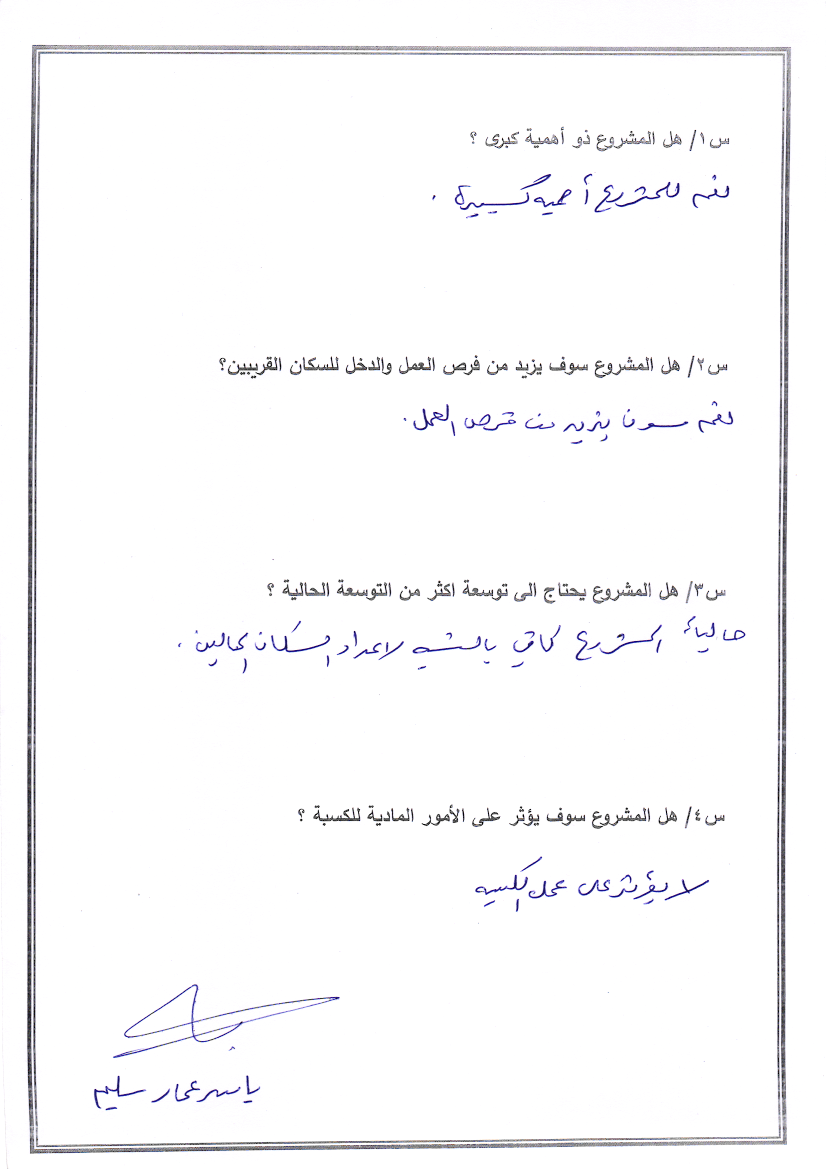 س١/ هل المشروع ذو أهمية كبرى ؟
نعم للمشروع أهمية كبيرة .
س٢/ هل المشروع سوف يزيد من فرص العمل والدخل للسكان القريبين؟
نعم سوف يزيد من فرص العمل .
س٣/ هل المشروع يحتاج الى توسعة اكثر من التوسعة الحالية ؟
حالياً المشروع كافي بالنسبه لاعداد السكان الحالين .
س٤/ هل المشروع سوف يؤثر على الأمور المادية للكسبة ؟
لا يؤثر على عمل الكسبه
ياسر عمار سليم